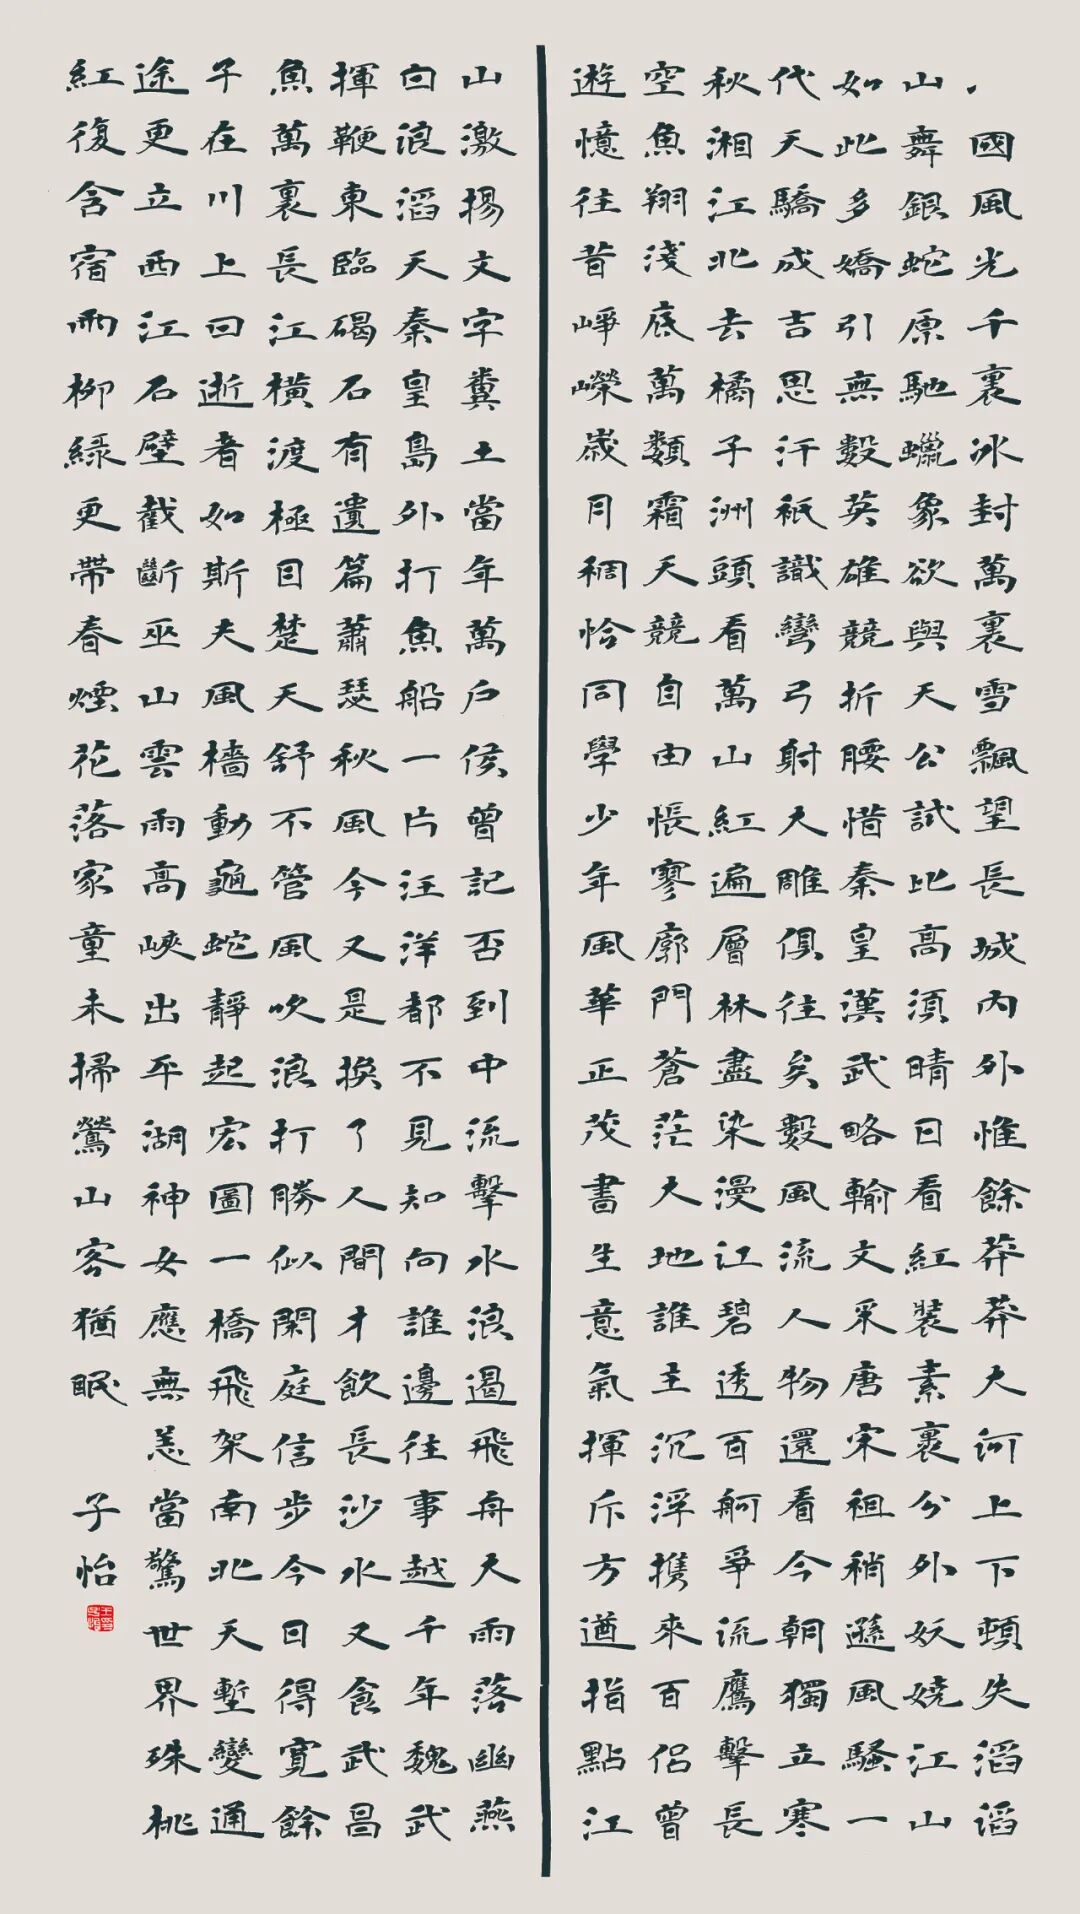 國風光千裏冰封萬裏雪飄望長城內外惟餘莽莽大河上下頓失滔滔
山舞銀蛇原馳蠟象欲與天公試比高須晴日看紅裝素裏分外妖嬈江山
如此多嬌引無數英雄競折腰惜秦皇漢武略輸文采唐宋祖稍遜風騷一
代天驕成吉思汗祇識彎弓射大雕俱往矣數風流人物還看今朝獨立寒
秋湘江北去橘子洲頭看萬山紅遍層林盡染漫江碧透百舸爭流鷹擊長
空魚翔淺底萬類霜天競自由悵寥廓門蒼茫大地誰主沉浮携來百侶曾
遊憶往昔崢嶸歲月稠恰同學少年風華正茂書生意氣揮斥方遒指點江
山激揚文字糞土當年萬戶侯曾記否到中流擊水浪遏飛舟大雨落幽燕
白浪滔天秦皇島外打魚船一片汪洋都不見知向誰邊往事越千年魏武
揮鞭東臨碣石有遺篇蕭瑟秋風今又是換了人間才飲長沙水又食武昌
魚萬裏長江橫渡極目楚天舒不管風吹浪打勝似閑庭信步今日得寬餘
子在川上曰逝者如斯夫風檣動龜蛇靜起宏圖一橋飛架南北天塹變通
途更立西江石壁截斷巫山雲雨高峽出平湖神女應無恙當驚世界殊桃
紅復含宿雨柳綠更帶春煙花落家童未掃鶯山客猶眠 子怡